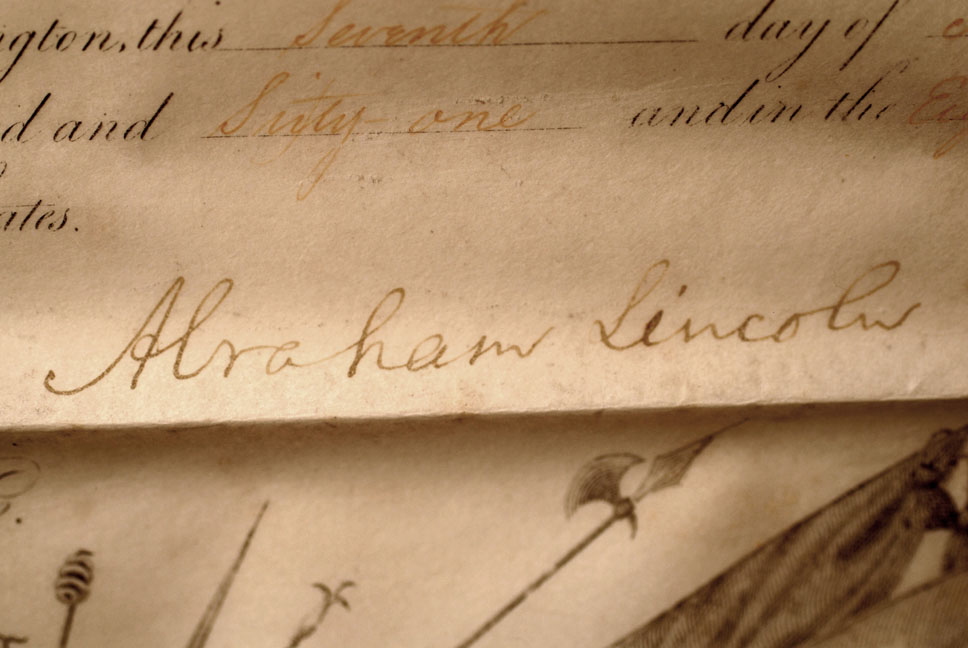 gton, this Seventh day of
d and Sixty one and in the
ates.
Abraham Lincoln